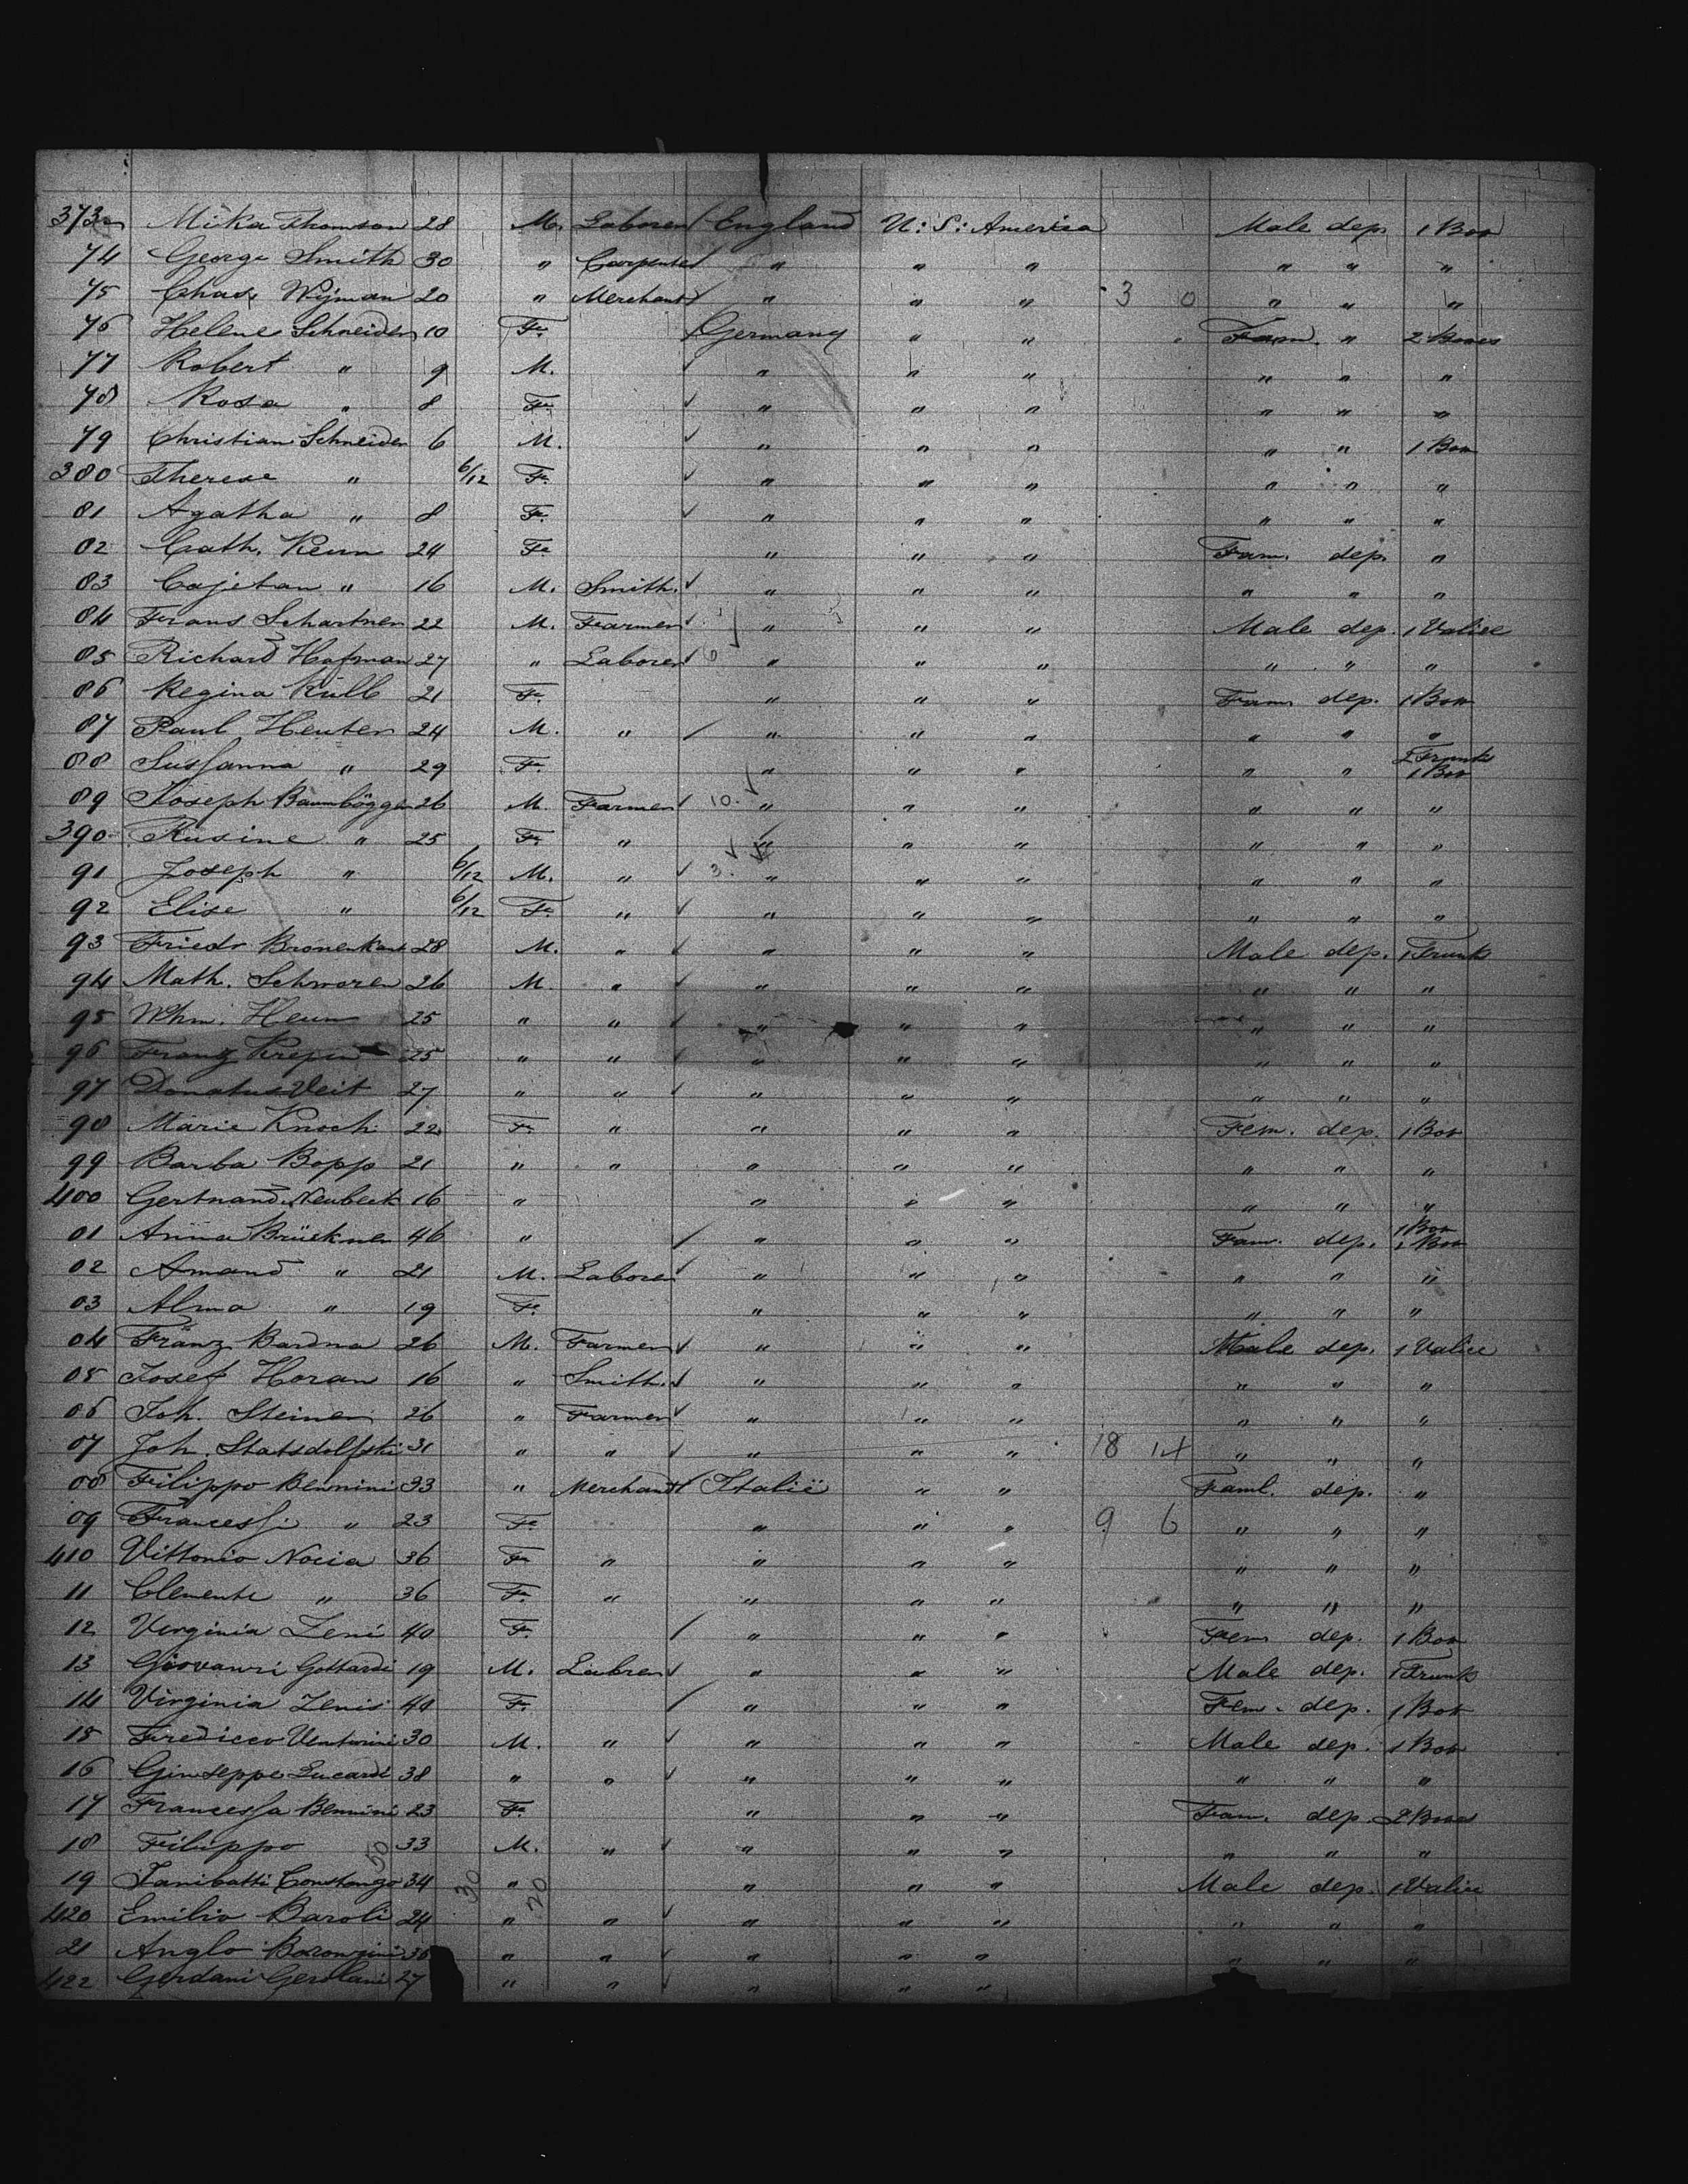 373 Mika Thomson 28 M. Laborer England U: S: America Male dep. 1 Box
74 George Smith 30 " Carpenter " " " " " "
75 Chas. Wijman 20 " Merchant " " " 3 0 " " "
76 Helene Schneider 10 Fe. Germany " " Fam. " 2 Boxes
77 Robert " 9 M. " " " " " "
78 Rosa " 8 Fe. " " " " " "
79 Christian Schneider 6 M. " " " " " 1 Box
380 Therese " 6/12 Fe. " " " " " "
81 Agatha " 8 Fe. " " " " " "
82 Cath. 24 Fe " " " Fam. dep. "
83 Cajetan " 16 M. Smith. " " " " " "
84 Frans Schartner 22 M. Farmer " " " Male dep. 1 Valice
85 Richard Hofman 27 " Laborer " " " " " "
86 Regina Küll 21 Fe. " " " Fam dep. 1 Box
87 Paul Heuter 24 M. " " " " " " "
88 Susfanna " 29 Fe. " " " " " 2 Trunks 1 Box
89 Joseph Baumbögger 26 M. Farmer 10. " " " " " "
390 Rusine " 25 Fe. " " " " " " "
91 Joseph " 6/12 M. " 3. " " " " " "
92 Elise " 6/12 Fe. " " " " " " "
93 Friedr 28 M. " " " " Male dep. 1 Trunk
94 Math. Schworer 26 M. " " " " " " "
95 Whm. Heun 25 " " " " " " " "
96 Franz 25 " " " " " " " "
97 Donatus Veit 27 " " " " " " " "
98 Marie Knoch 22 Fe. " " " " Fem. dep. 1 Box
99 Barba Bopp 21 " " " " " " " "
400 Gertnand Neubeck 16 " " " " " " "
01 Anna Brückner 46 " " " " Fam. dep. 1 Box 1 Box
02 Amand " 21 M. Laborer " " " " " "
03 Alma " 19 Fe. " " " " " "
04 Franz Bardna 26 M. Farmer " " " Male dep. 1 Valice
05 Josef Horan 16 " Smith. " " " " " "
06 Joh. Steiner 26 " Farmer " " " " " "
07 Joh. Statsdolfski 31 " " " " " 18 14 " " "
08 Filippo Bennini 33 " Merchant Italië " " Faml. dep. "
09 Francessi " 23 Fe " " " 9 6 " " "
410 Vittonio Nocia 36 Fe " " " " " " "
11 Clemente " 36 Fe. " " " " " " "
12 Verginia Zeni 40 Fe. " " " Fem dep. 1 Box
13 Giovanri Gottardi 19 M. Labrer " " " Male dep. 1 Trunk
14 Virginia Zenis 40 Fe. " " " Fem. dep. 1 Box
15 Fredicco Venturini 30 M. " " " " Male dep. 1 Box
16 Ginseppe Lucardi 38 " " " " " " " "
17 Francessa Bennini 23 Fe. " " " Fam. dep. 2 Boxes
18 Filuppo 33 M. " " " " " " "
19 Janibatti Constanzo 34 " " " " Male dep. 1 Valice
50 30 20
420 Emilio Baroli 24 " " " " " " " "
21 Anglo 36 " " " " " " " "
422 Gerdani Gerolani 27 " " " " " "